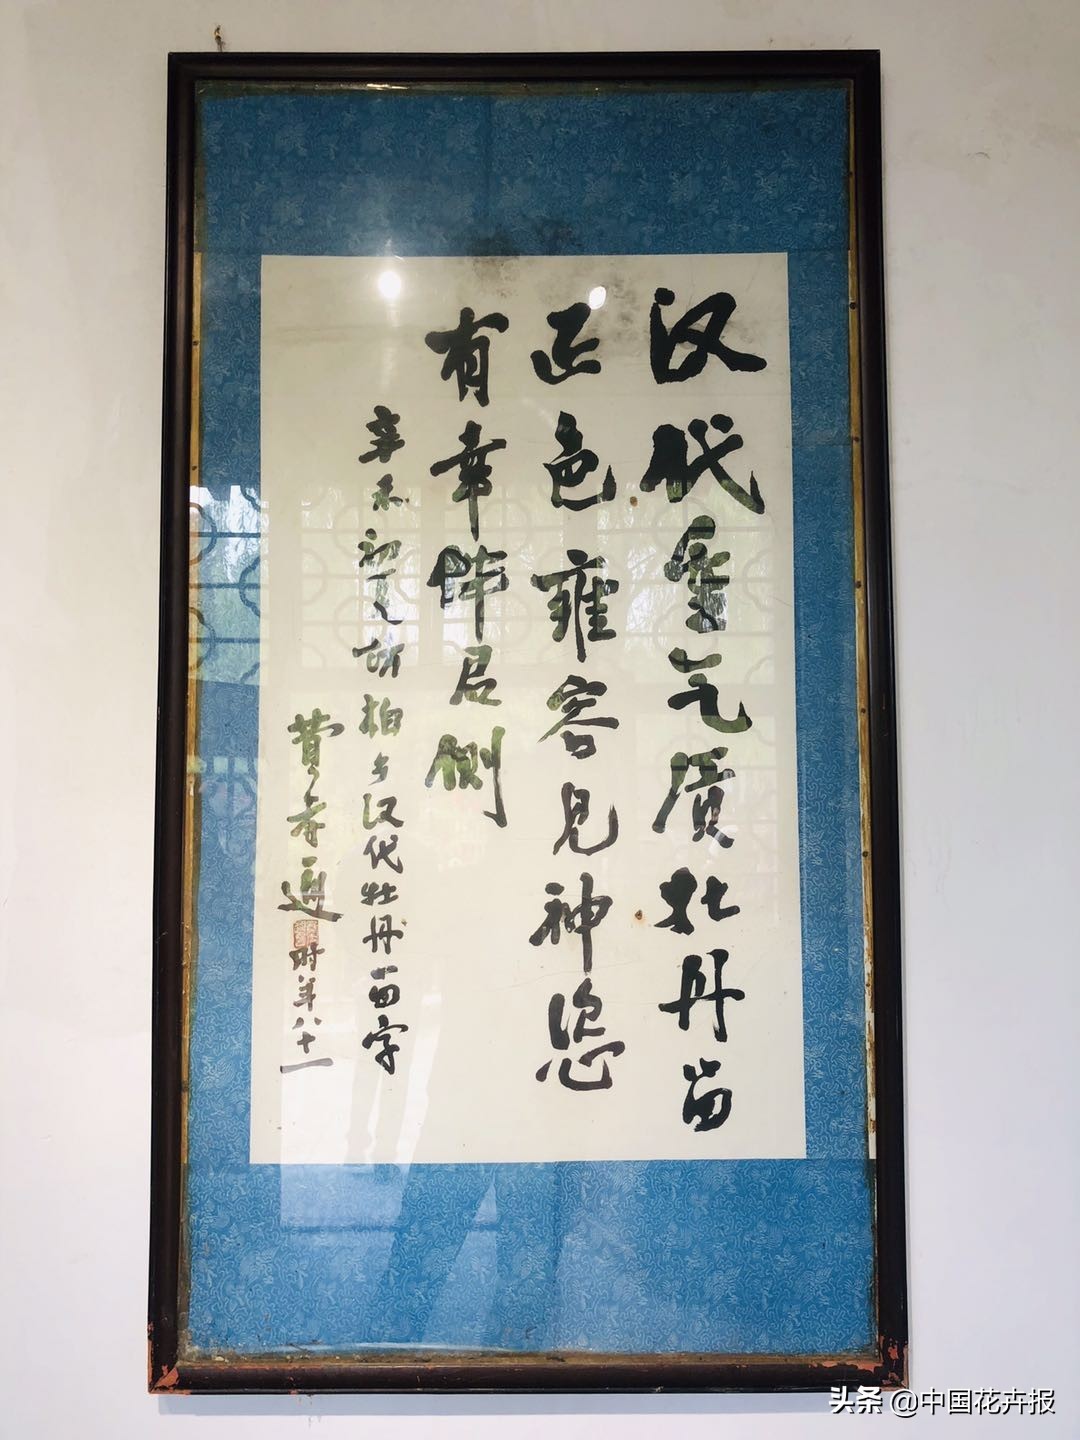 汉代重气质牡丹留
正色雍容见神恣
有幸伴君侧
辛未初夏访柏乡汉代牡丹留字
费孝通 时年八十一
头条 @中国花卉报